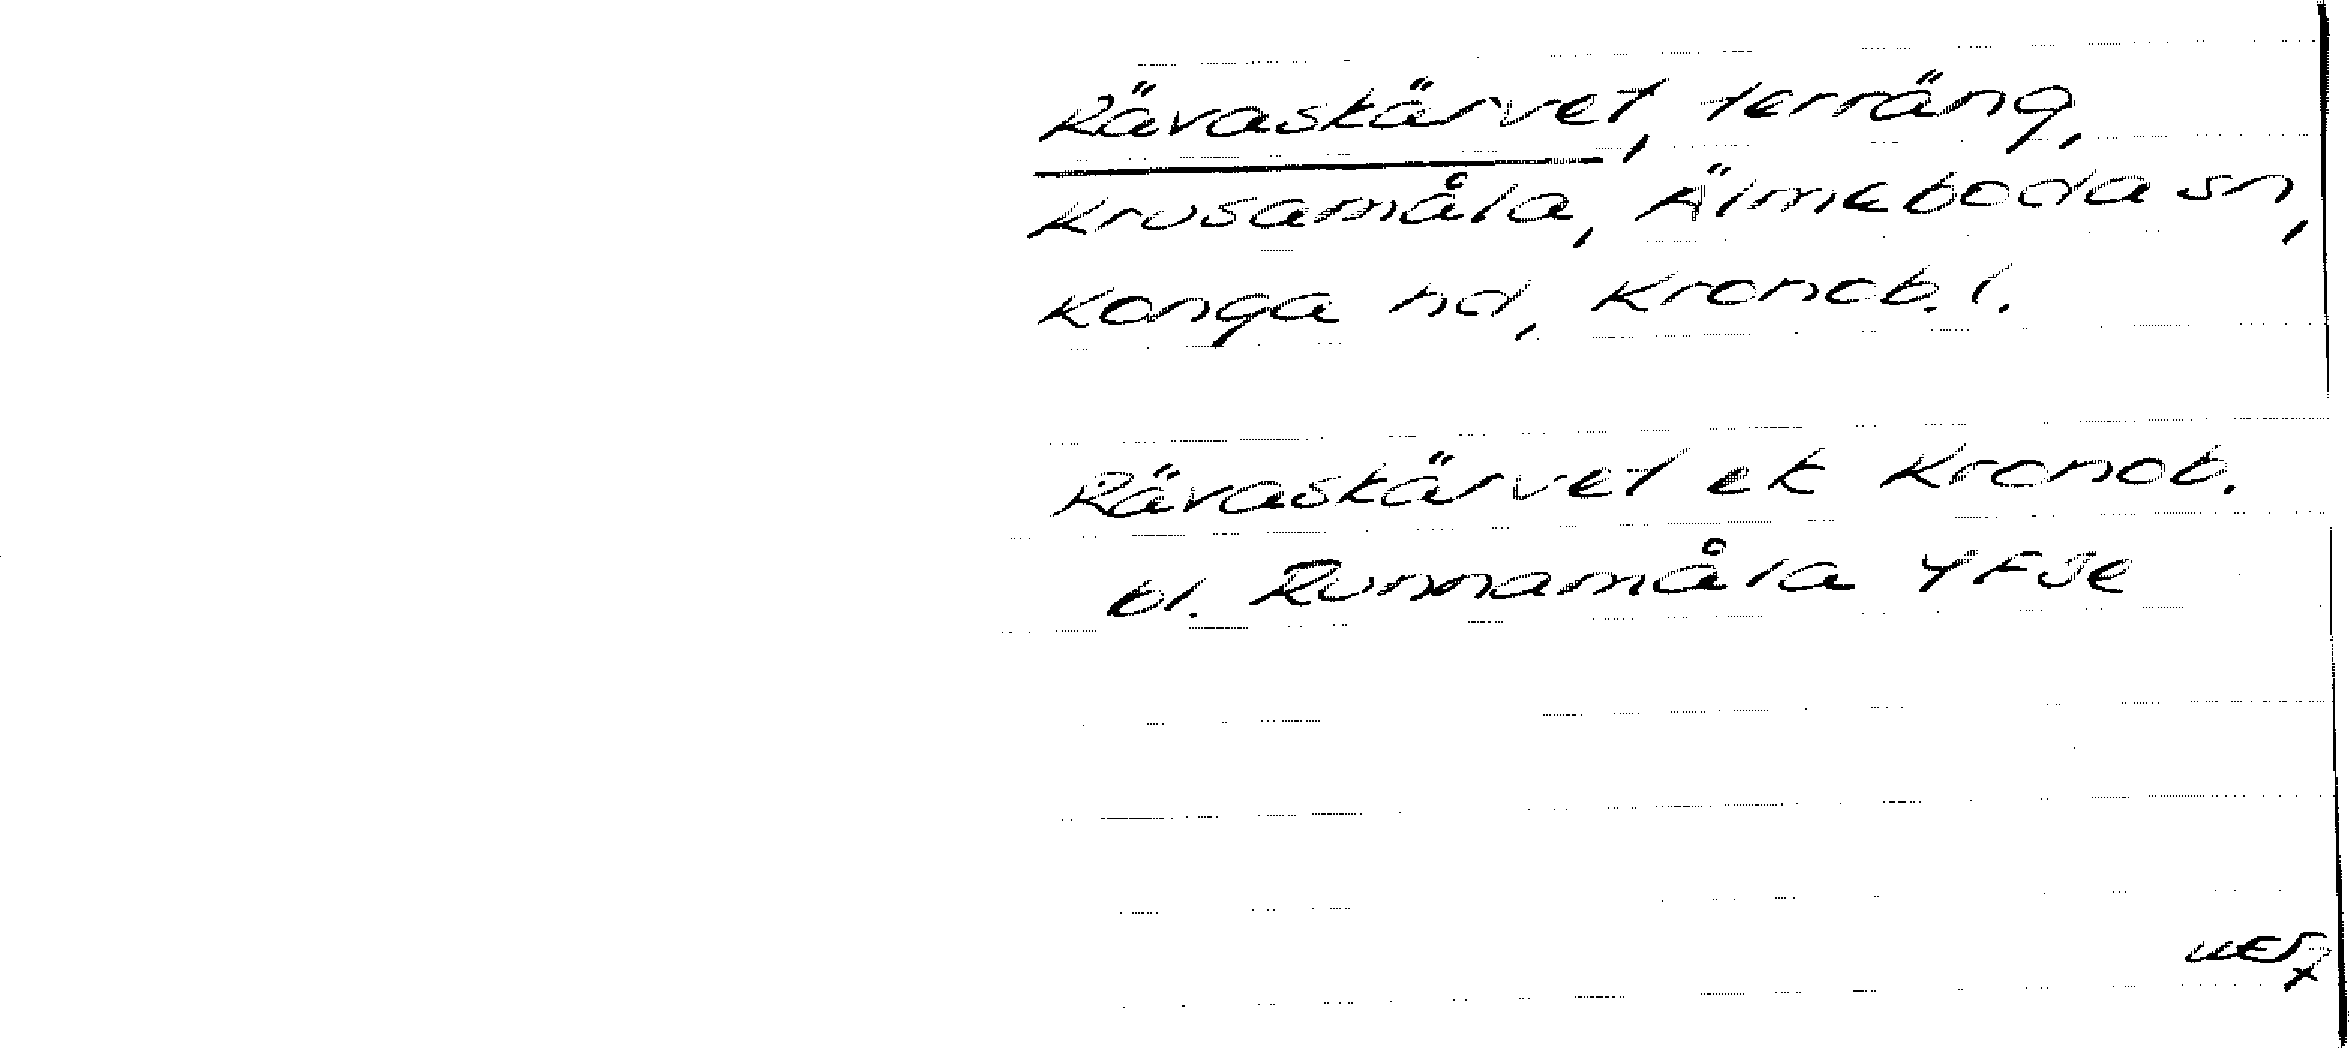 Rävaskärvet, terräng,
Krusamåla, Älmeboda sn,
Konga hd, Kronob. l.
Rävaskärvet ek Kronob.
bl. Runnamåla 4F5e